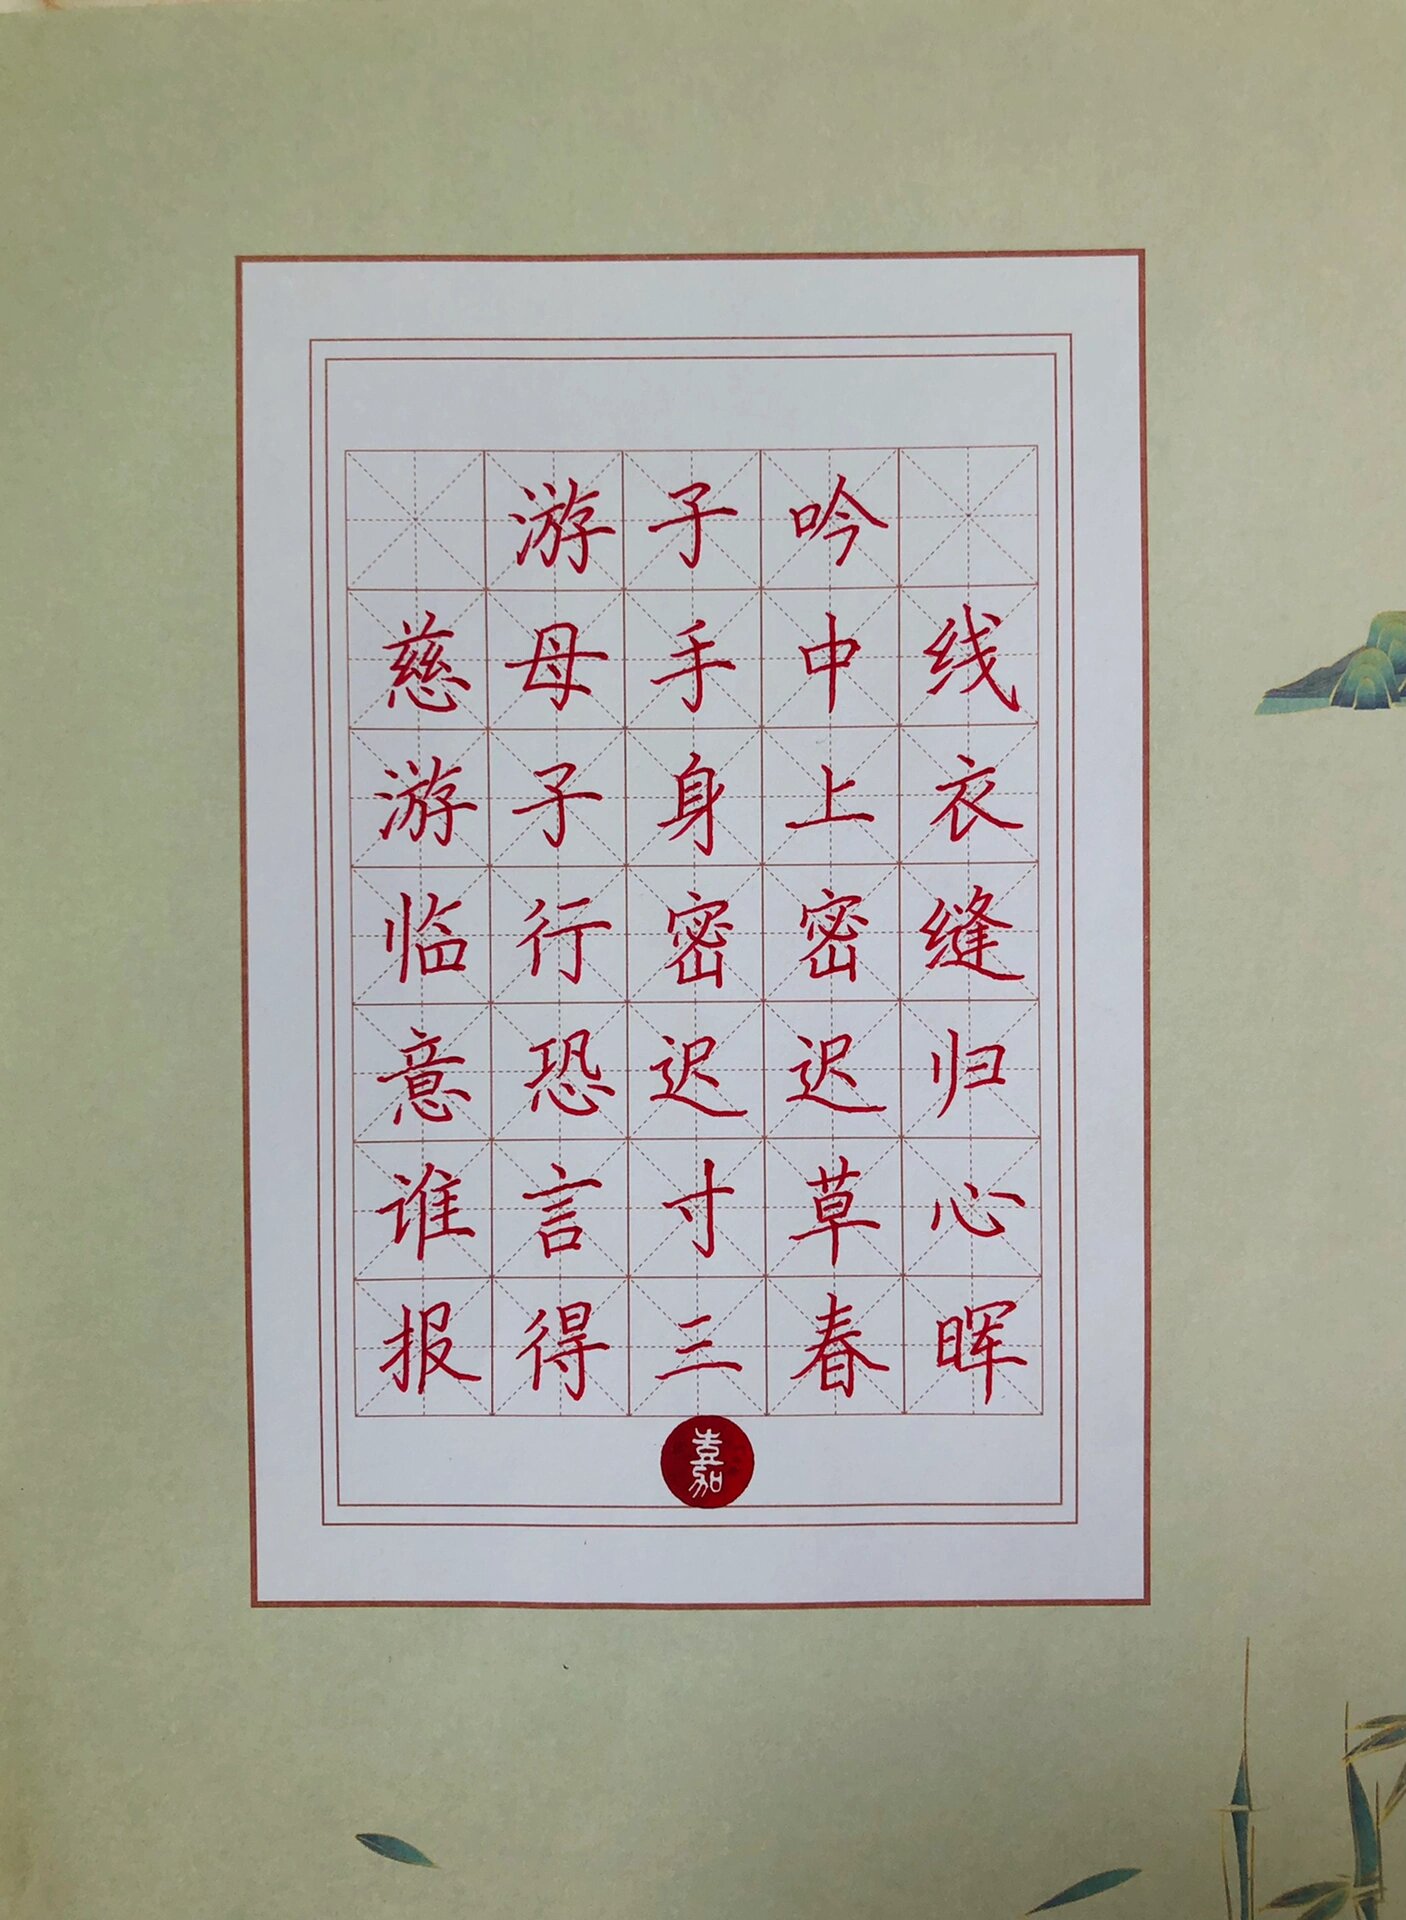 游子吟
慈母手中线
游子身上衣
临行密密缝
意恐迟迟归
谁言寸草心
报得三春晖
嘉